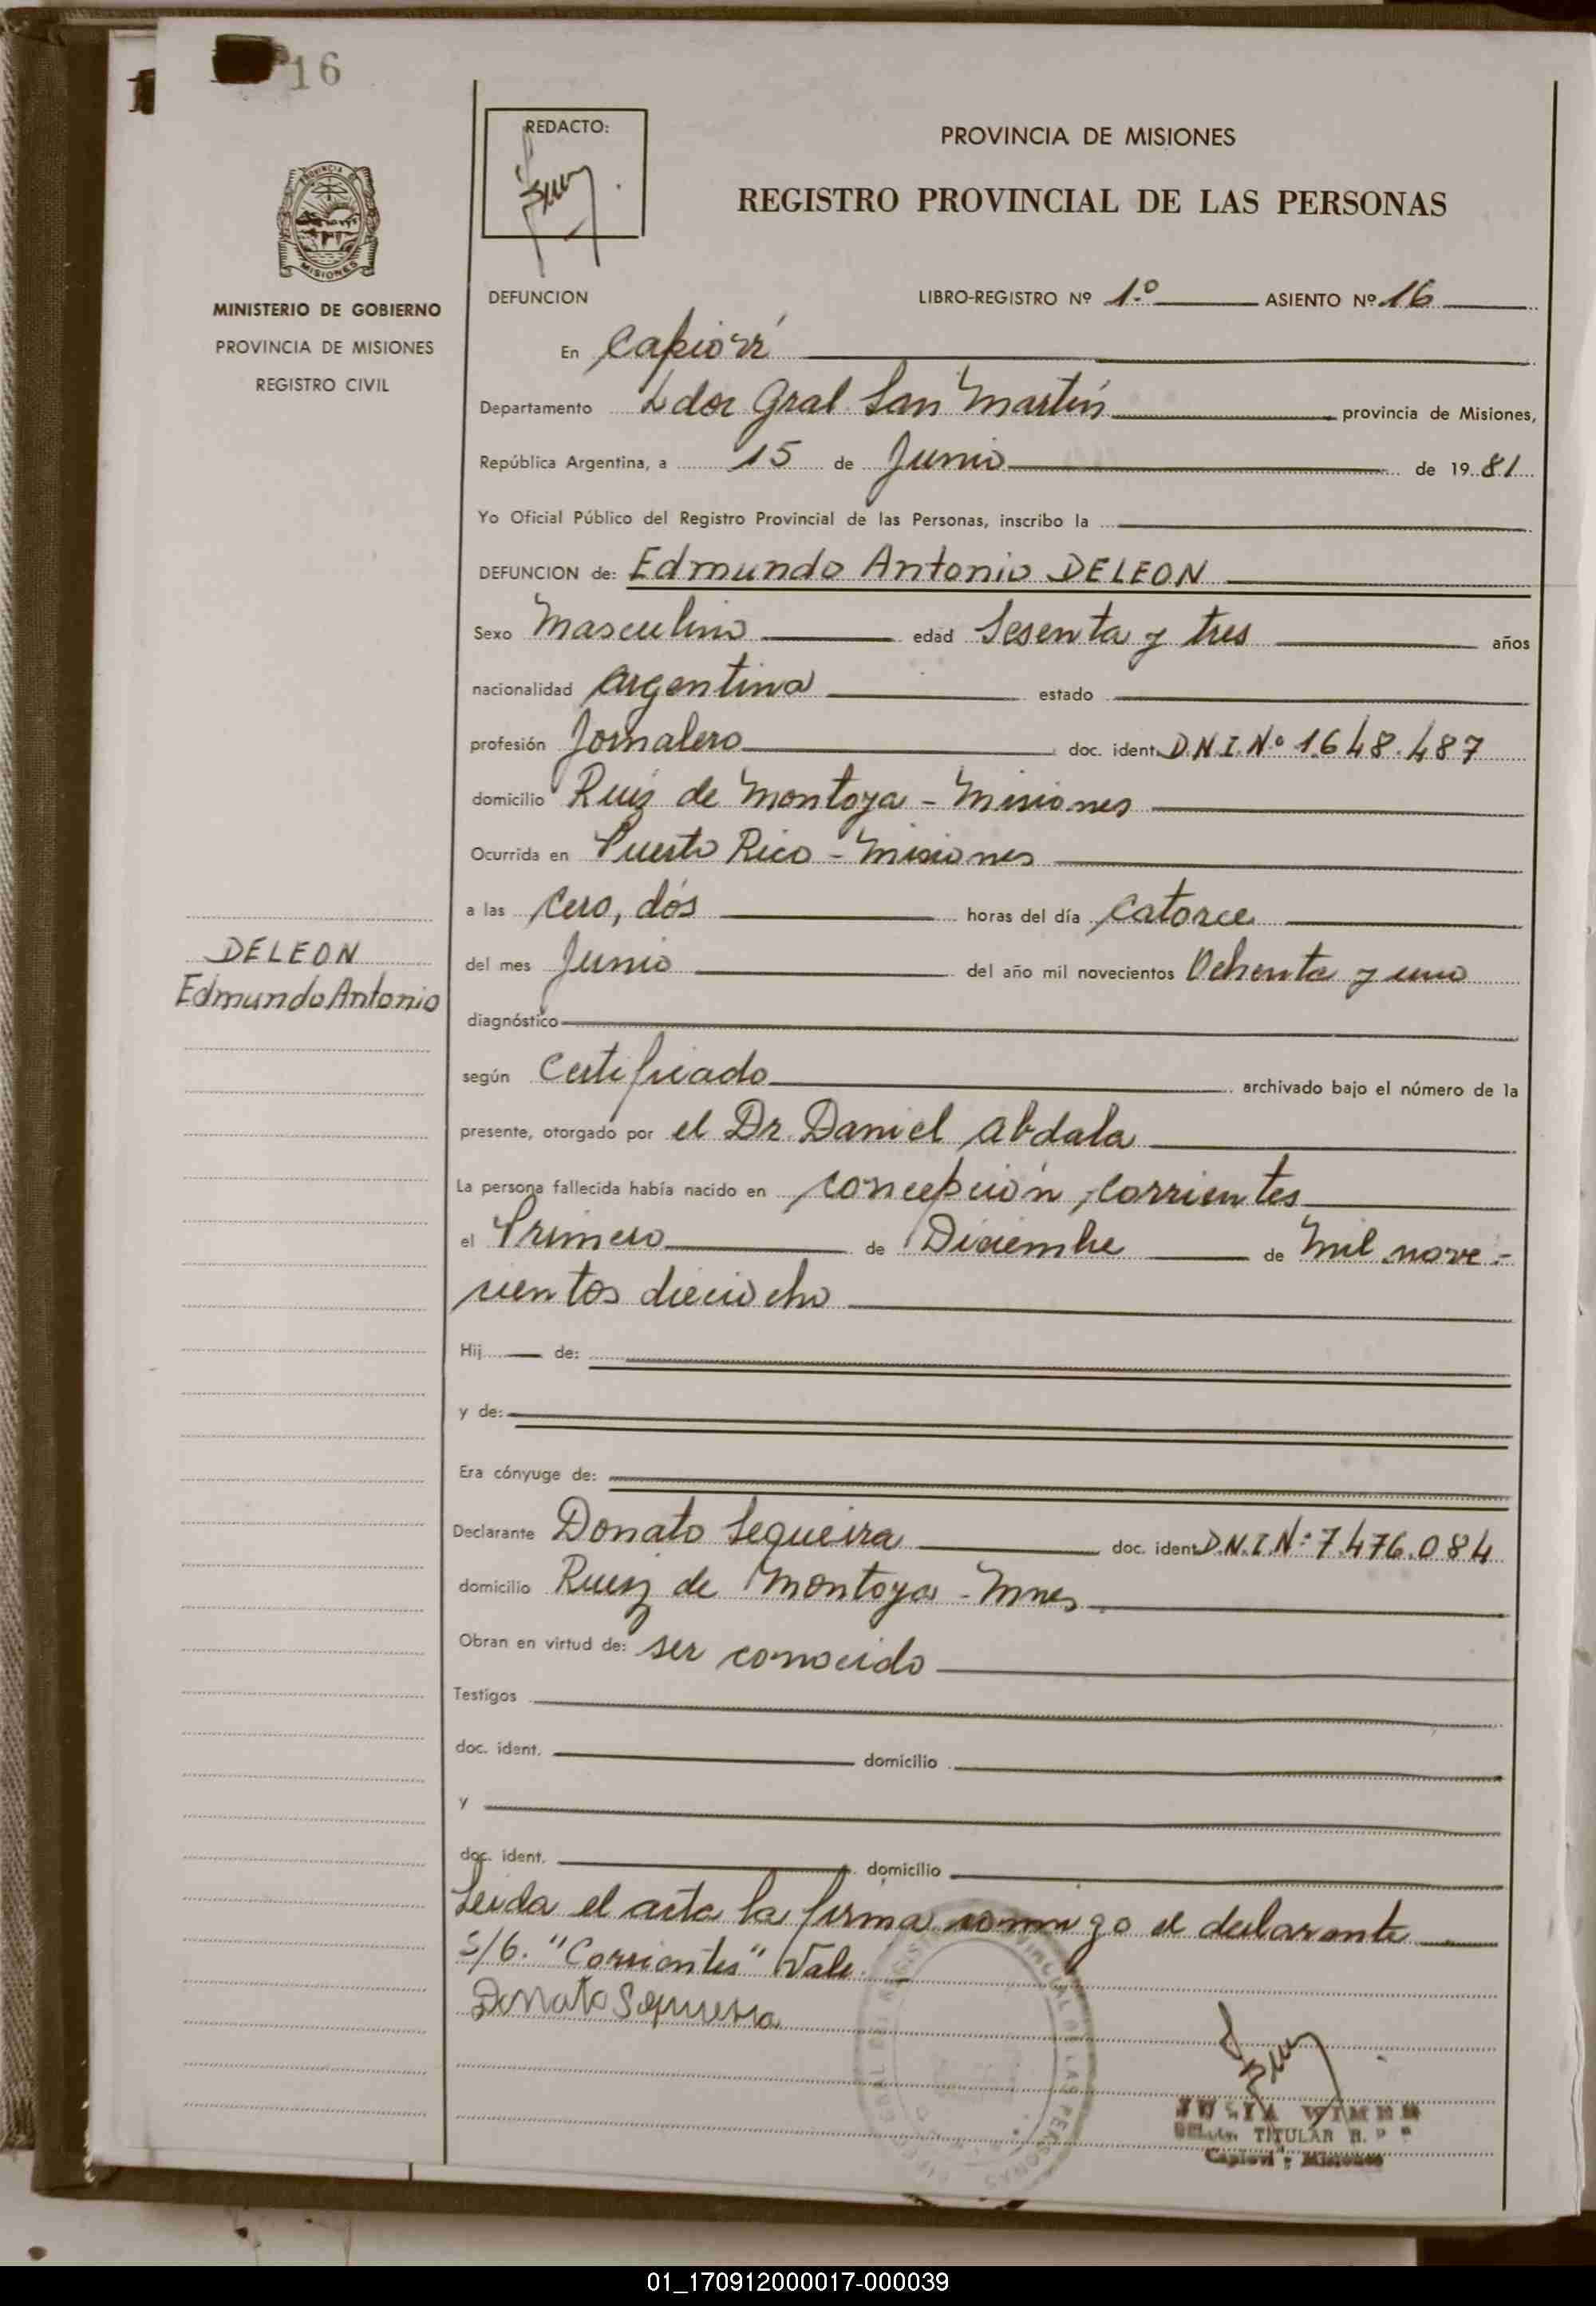 16
REDACTO:
PROVINCIA DE MISIONES
REGISTRO PROVINCIAL DE LAS PERSONAS
PROVINCIA DE
MISIONES
MINISTERIO DE GOBIERNO
PROVINCIA DE MISIONES
REGISTRO CIVIL
DEFUNCION LIBRO-REGISTRO Nº 1º ASIENTO Nº 16
En Capioví
Departamento Ldor Gral San Martín provincia de Misiones,
República Argentina, a 15 de Junio de 1981
Yo Oficial Público del Registro Provincial de las Personas, inscribo la
DEFUNCION de: Edmundo Antonio DELEON
Sexo Masculino edad Sesenta y tres años
nacionalidad argentina estado
profesión Jornalero doc. ident. D.N.I.Nº 1.648.487
domicilio Ruiz de Montoya - Misiones
Ocurrida en Puerto Rico - Misiones
a las cero, dós horas del día catorce
del mes Junio del año mil novecientos Ochenta y uno
DELEON
Edmundo Antonio
diagnóstico
según Certificado archivado bajo el número de la
presente, otorgado por el Dr. Daniel Abdala
La persona fallecida había nacido en concepción, corrientes
el Primero de Diciembre de Mil nove-
cientos dieciocho
Hij de:
y de:
Era cónyuge de:
Declarante Donato Sequeira doc. ident D.N.I.Nº 7.476.084
domicilio Ruiz de Montoya - Mnes
Obran en virtud de: ser conocido
Testigos
doc. ident. domicilio
y
doc. ident. domicilio
Leida el acta la firma conmigo el declarante
S/6. "Corrientes" Vale.
Donato Sequeira
TITULAR R. P.
Capioví - Misiones
01_170912000017-000039